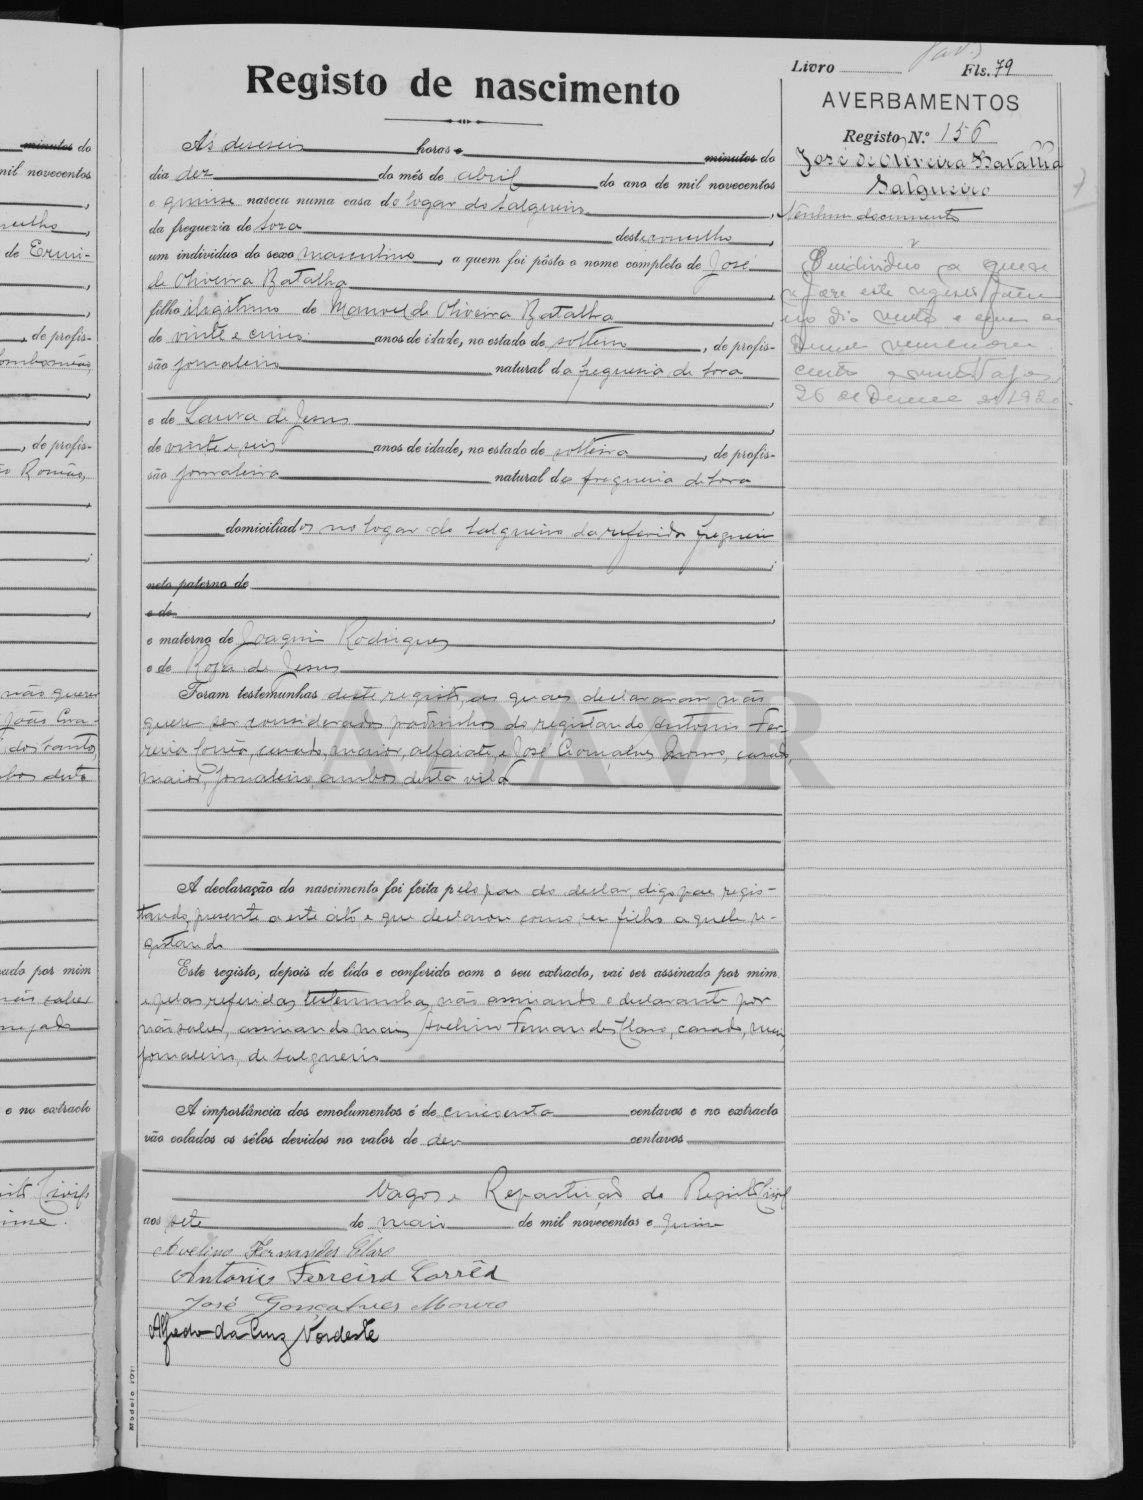 Livro Fls. 79
Registo de nascimento
AVERBAMENTOS
Registo N.º 156
José de Oliveira Batalha
Salgueiro
Nenhum documento
O individuo a quem
se refere este registo
no dia vinte e
26 de 192
Ás deseseis horas e minutos do
dia dez do mês de abril do ano de mil novecentos
e quinse nasceu numa casa do logar do Salgueiro,
da freguezia de Sosa deste concelho,
um individuo do sexo masculino, a quem foi pôsto o nome completo de José
de Oliveira Batalha,
filho ilegitimo de Manuel de Oliveira Batalha,
de vinte e cinco anos de idade, no estado de solteiro, de profis-
são jornaleiro natural da freguesia de Sosa
,
e de Laura de Jesus,
de vinte e seis anos de idade, no estado de solteira, de profis-
são jornaleira natural da freguesia de Sosa
,
domiciliados no logar do Salgueiro da referida freguesia
;
neto paterno de
e de,
e materno de Joaquim Rodrigues
e de Rosa de Jesus
Foram testemunhas deste registo, as quaes declararam não
querer ser considerados padrinhos do registando Antonio Fer-
reira Corrêa, casado, maior, alfaiate e José Gonçalves Mouro, casado,
maior, jornaleiro, ambos desta vila
A declaração do nascimento foi feita pelo pae do declar, digo pae regis-
tando, presente a este acto e que declarou como seu filho aquele re-
gistando
Este registo, depois de lido e conferido com o seu extracto, vai ser assinado por mim
e pelas referidas testemunhas, não assinando o declarante por
não saber, assinando mais, Avelino Fernandes Claro, casado, maior,
jornaleiro, de Salgueiro
A importância dos emolumentos é de cincoenta centavos e no extracto
vão colados os sêlos devidos no valor de dez centavos
Vagos e Repartição do Registo Civil
aos sete de maio de mil novecentos e quinse
Avelino Fernandes Claro
Antonio Ferreira Corrêa
José Gonçalves Mouro
Alfredo da Cruz Nordeste
Modelo
minutos do
mil novecentos
,
concelho,
de Ermi-
,
, de profis-
,
, de profis-
Romão,
;
não querer
João
dos Santos
desta
nado por mim
não saber
e no extracto
Civil